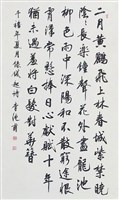 二月黃鸝飛上林春城紫禁曉
陰陰長樂鐘聲花外盡龍池
柳色雨中深陽和不散窮途恨
霄漢常懸捧日心獻賦十年
猶未遇羞將白髮對華簪
年夏月錄錢起詩